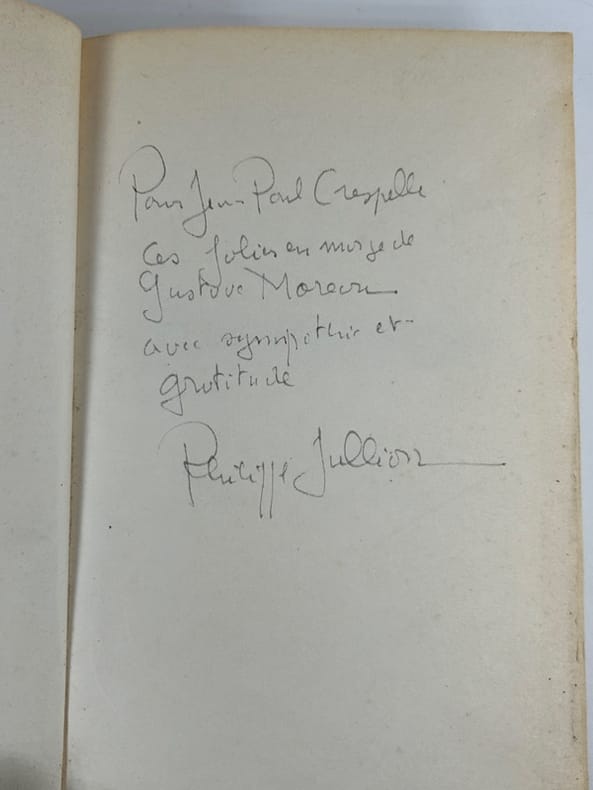 Pour Jean Paul Crespelle
ces folies en marge de
Gustave Moreau
avec sympathie et
gratitude
Philippe Jullian